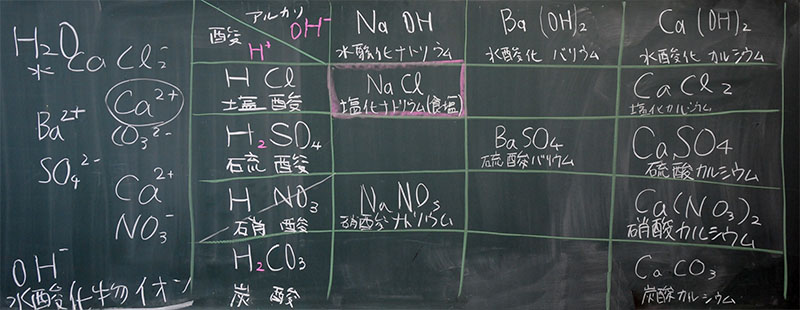 H₂O
水
CaCl₂
Ca²⁺
Ba²⁺
CO₃²⁻
SO₄²⁻
Ca²⁺
NO₃⁻
OH⁻
水酸化物イオン
アルカリ OH⁻
酸 H⁺
NaOH
水酸化ナトリウム
Ba(OH)₂
水酸化バリウム
Ca(OH)₂
水酸化カルシウム
HCl
塩酸
NaCl
塩化ナトリウム(食塩)
CaCl₂
塩化カルシウム
H₂SO₄
硫酸
BaSO₄
硫酸バリウム
CaSO₄
硫酸カルシウム
HNO₃
硝酸
NaNO₃
硝酸ナトリウム
Ca(NO₃)₂
硝酸カルシウム
H₂CO₃
炭酸
CaCO₃
炭酸カルシウム